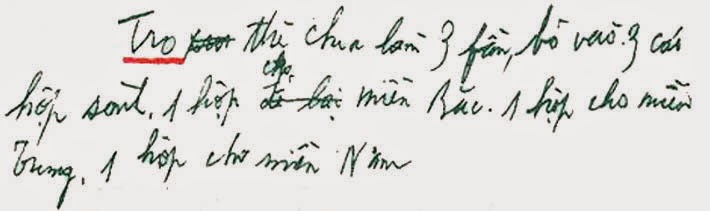 Tro xương thì chia làm 3 fần, bỏ vào 3 cái
hộp sành. 1 hộp cho để lại miền Bắc. 1 hộp cho miền
Trung, 1 hộp cho miền Nam